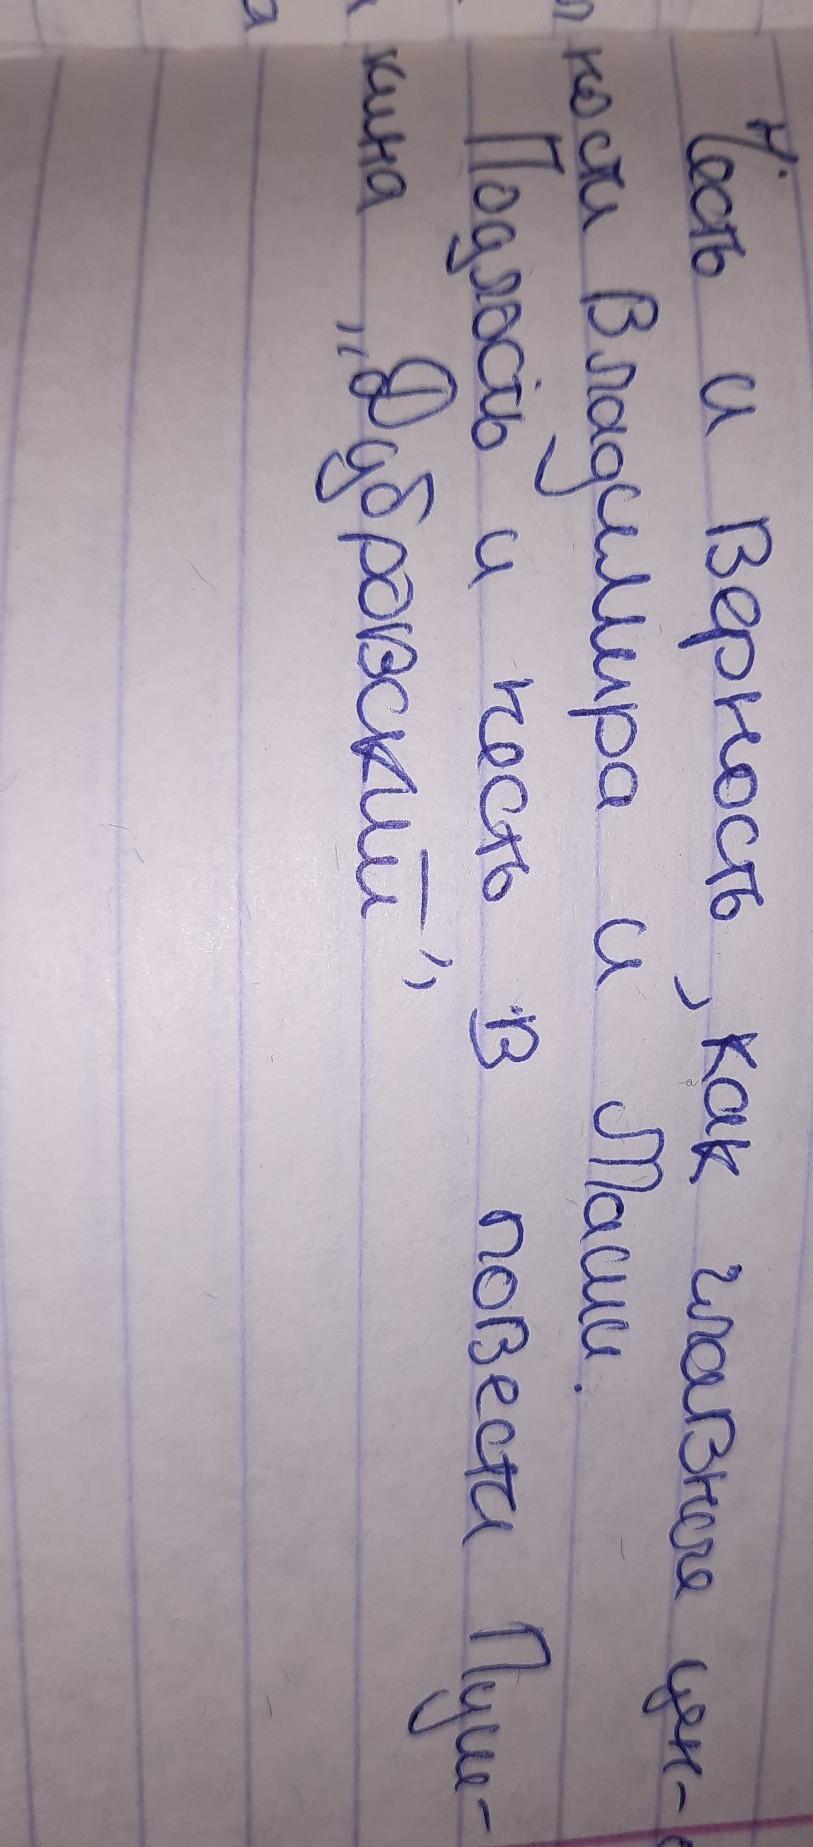 Честь и Верность, как главные цен-
ности Владимира и Маши.
Подлость и честь в повести Пуш-
кина „Дубровский”